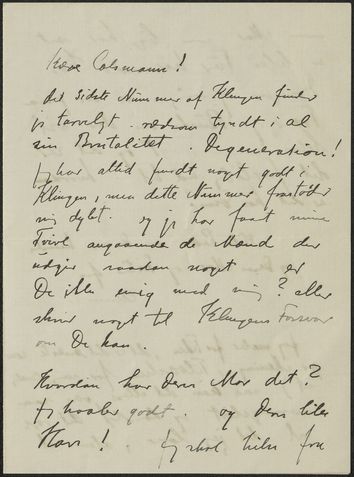 Kære Colsmann!
Det sidste Nummer af Klingen finder
jeg tarveligt. rædsom tyndt i al
sin Brutalitet. Degeneration!
Jeg har altid fundt noget godt i
Klingen, men dette Nummer frastøder
mig dybt. og jeg har faaet mine
Tvivl angaaende de Mænd der
udgir saadan noget er
De ikke enig med mig? eller
skriv noget til Klingens Forsvar
om De kan.
Hvordan har Deres Mor det?
Jeg haaber godt. og Deres lille
Have! Jeg skal hilse fra